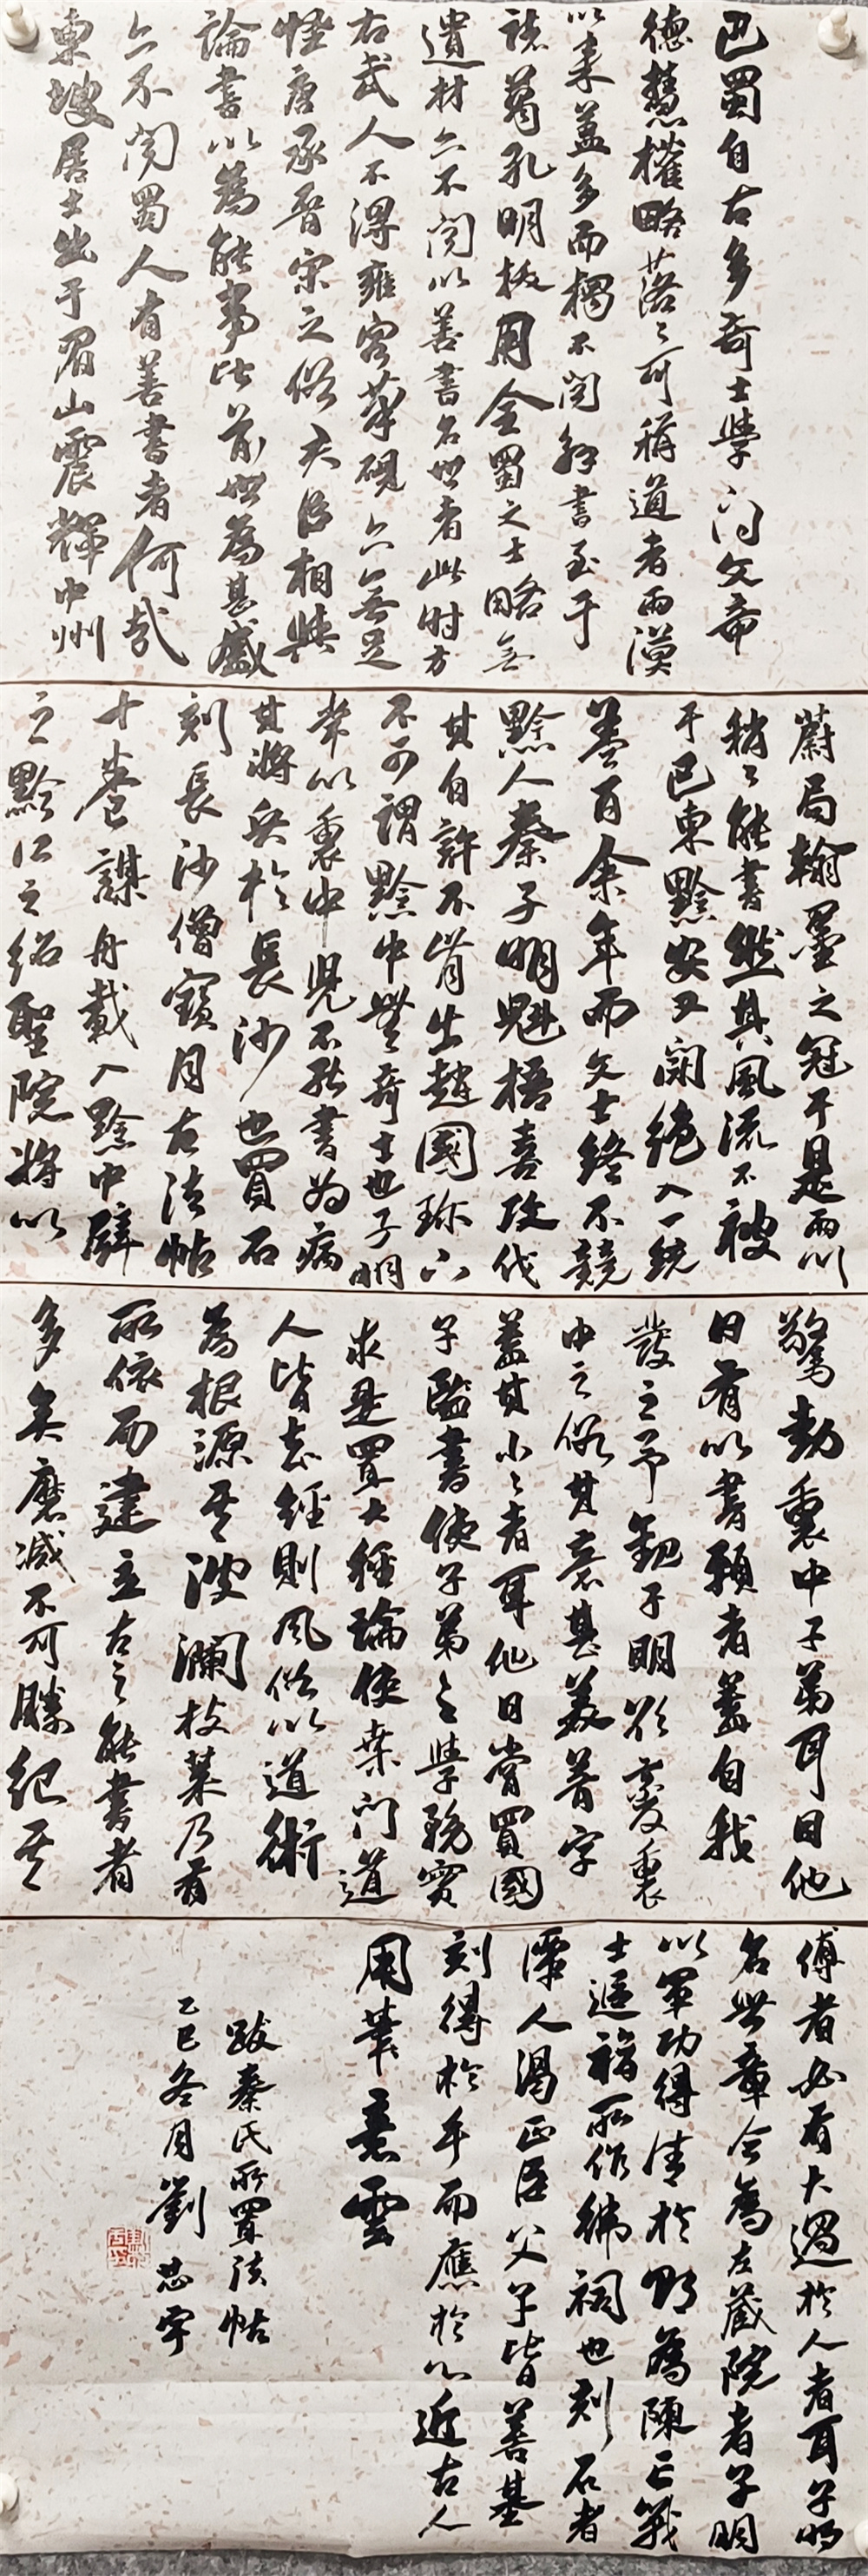 巴蜀自古多奇士學問文章
德慧權略落々可稱道者兩漢
以來蓋多而獨不聞解書至于
諸葛孔明拔用全蜀之士略無
遺材亦不聞以善書名世者此時方
右武人不得雍容筆硯亦無足
怪唐承晉宋之俗君臣相與
論書以為能事比前世為甚盛
亦不聞蜀人有善書者何哉
東坡居士出于眉山震輝中州
蔚局翰墨之冠于是兩川
稍々能書然其風流不被
于巴東黔安又闢絕入一統
蓋百余年而文士終不競
黔人秦子明魁梧喜攻伐
其自許不肯出趙國珍下
不可謂黔中無奇士也子明
常以里中兒不能書為病
其將兵於長沙也買石
刻長沙僧寶月古法帖
十卷謀舟載入黔中壁
之黔江之紹聖院將以
驚動里中子弟耳目他
日有以書顯者蓋自我
發之予觀子明欲變里
中之俗其意甚美著字
蓋其小々者耳他日當買國
子監書使子弟之學務實
求是置大經論使桑門道
人皆知經則風俗以道術
為根源其波瀾枝葉乃有
所依而建立古之能書者
多矣磨滅不可勝紀其
傳者必有大過於人者耳子明
名世章今為左藏院者子明
以軍功得請於朝為陳亡戰
士追福所作佛祠也刻石者
潭人湯正臣父子皆善摹
刻得於手而應於心近古人
用筆意雲
跋秦氏所置法帖
乙巳冬月劉